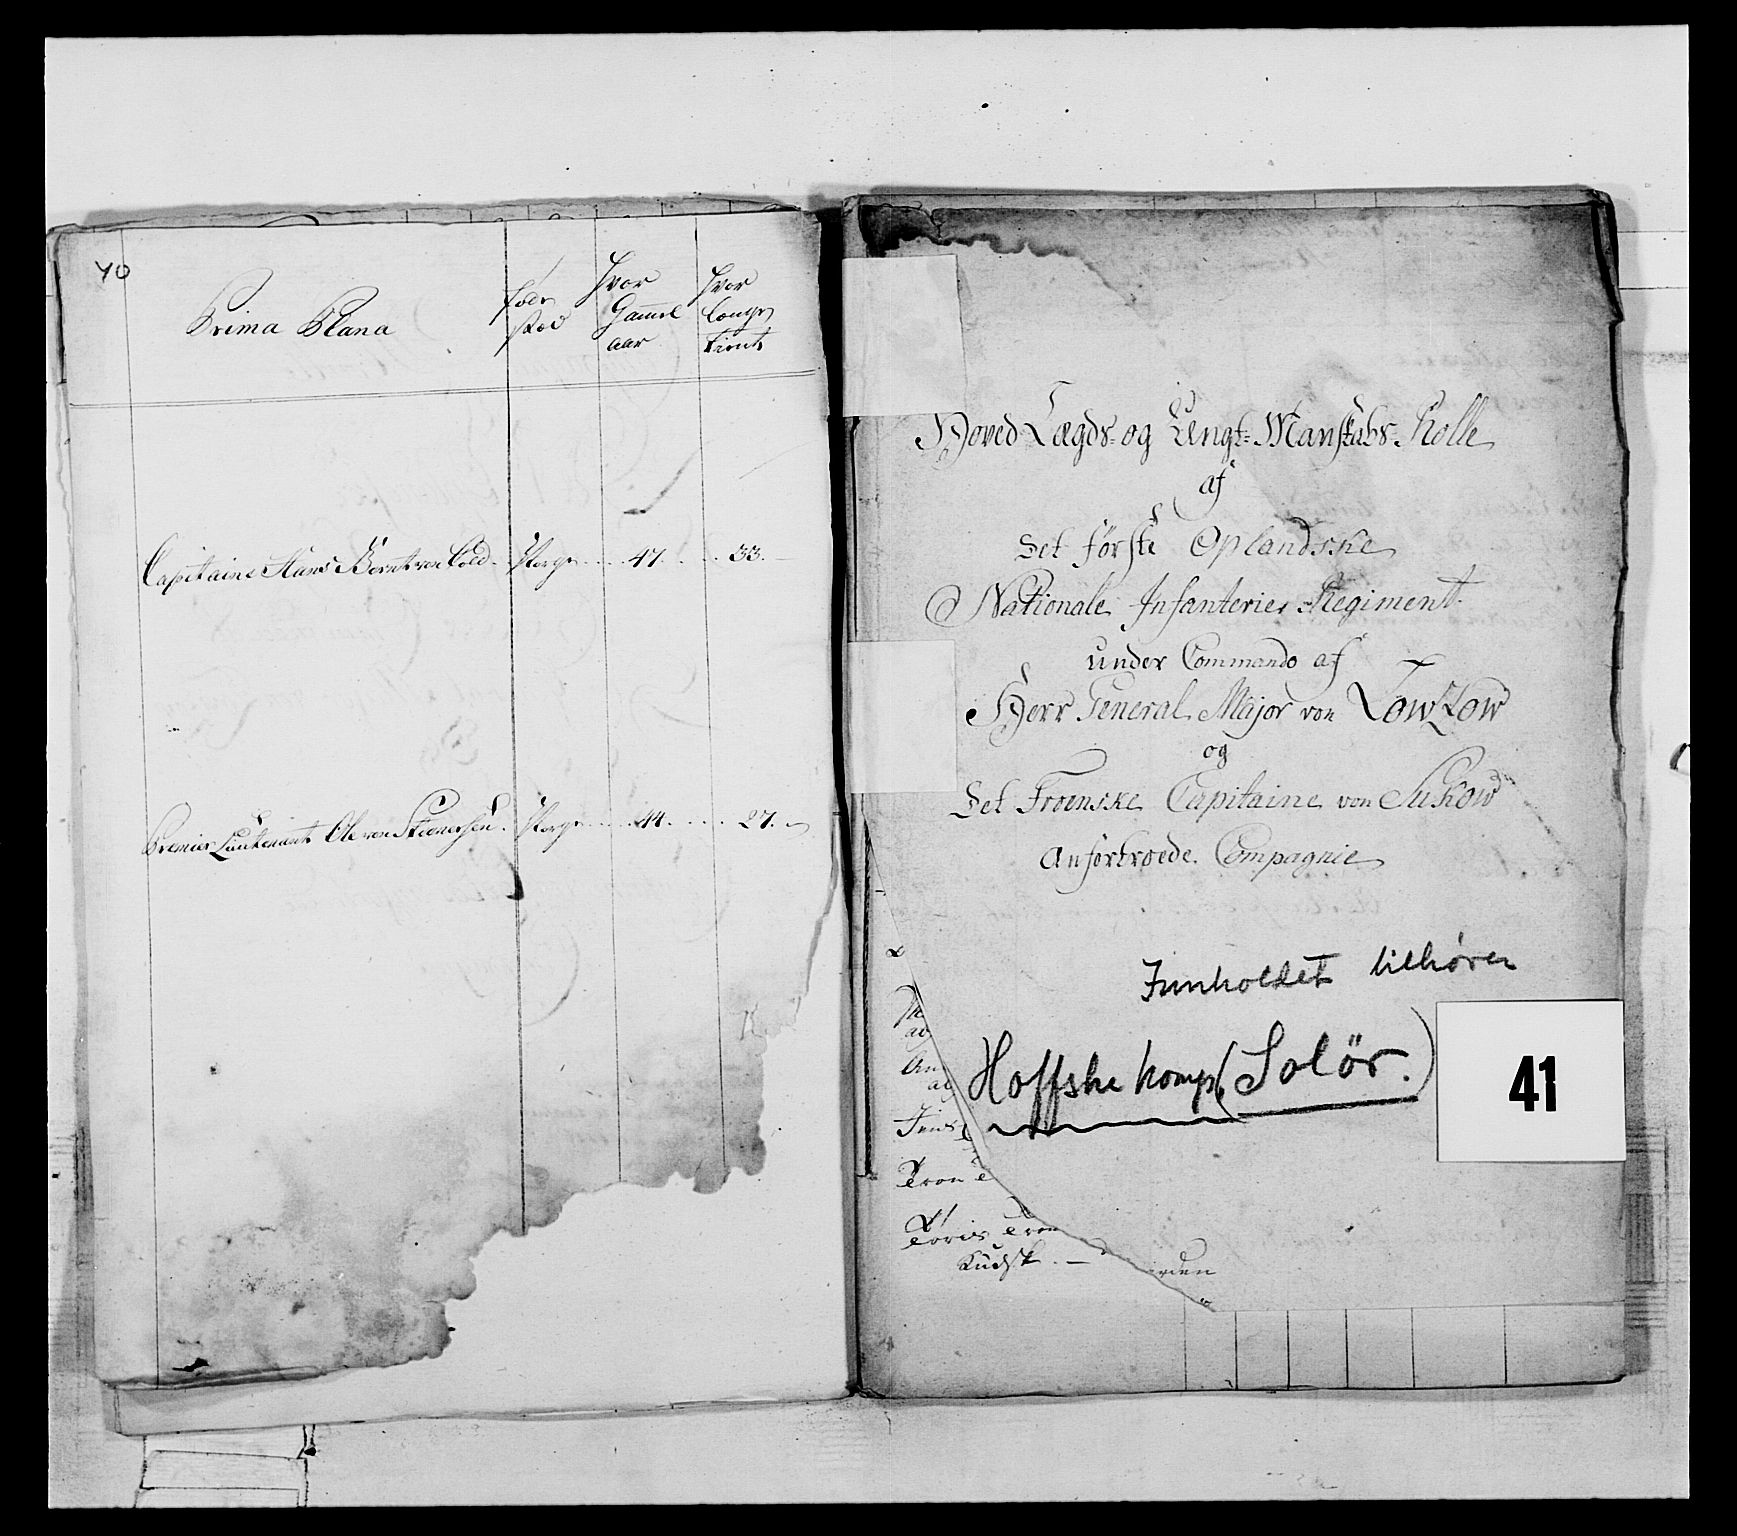 40
Prima Plana
føde
stæd
hvor
Gammel
aar
hvor
længe
tient
Capitaine Hans Bernt von Cold - Norge .... 47. ... 33. -
Premier Lieutenant Ole von Skiønersen . Norge .... 44. .... 27.
Hoved Lægds- og Ungt-Manskabs-Rolle
af
det første Oplandske
Nationale Infanterie Regiment
under Commando af
Herr General Major von Lowzow
og
det Froenske Capitaine von Sukow
Anfortroede Compagnie
Innholdet tilhører
Hoffske komp. (Solör.)
41
Jens
Tron
Toris Tron
Kudsk. —